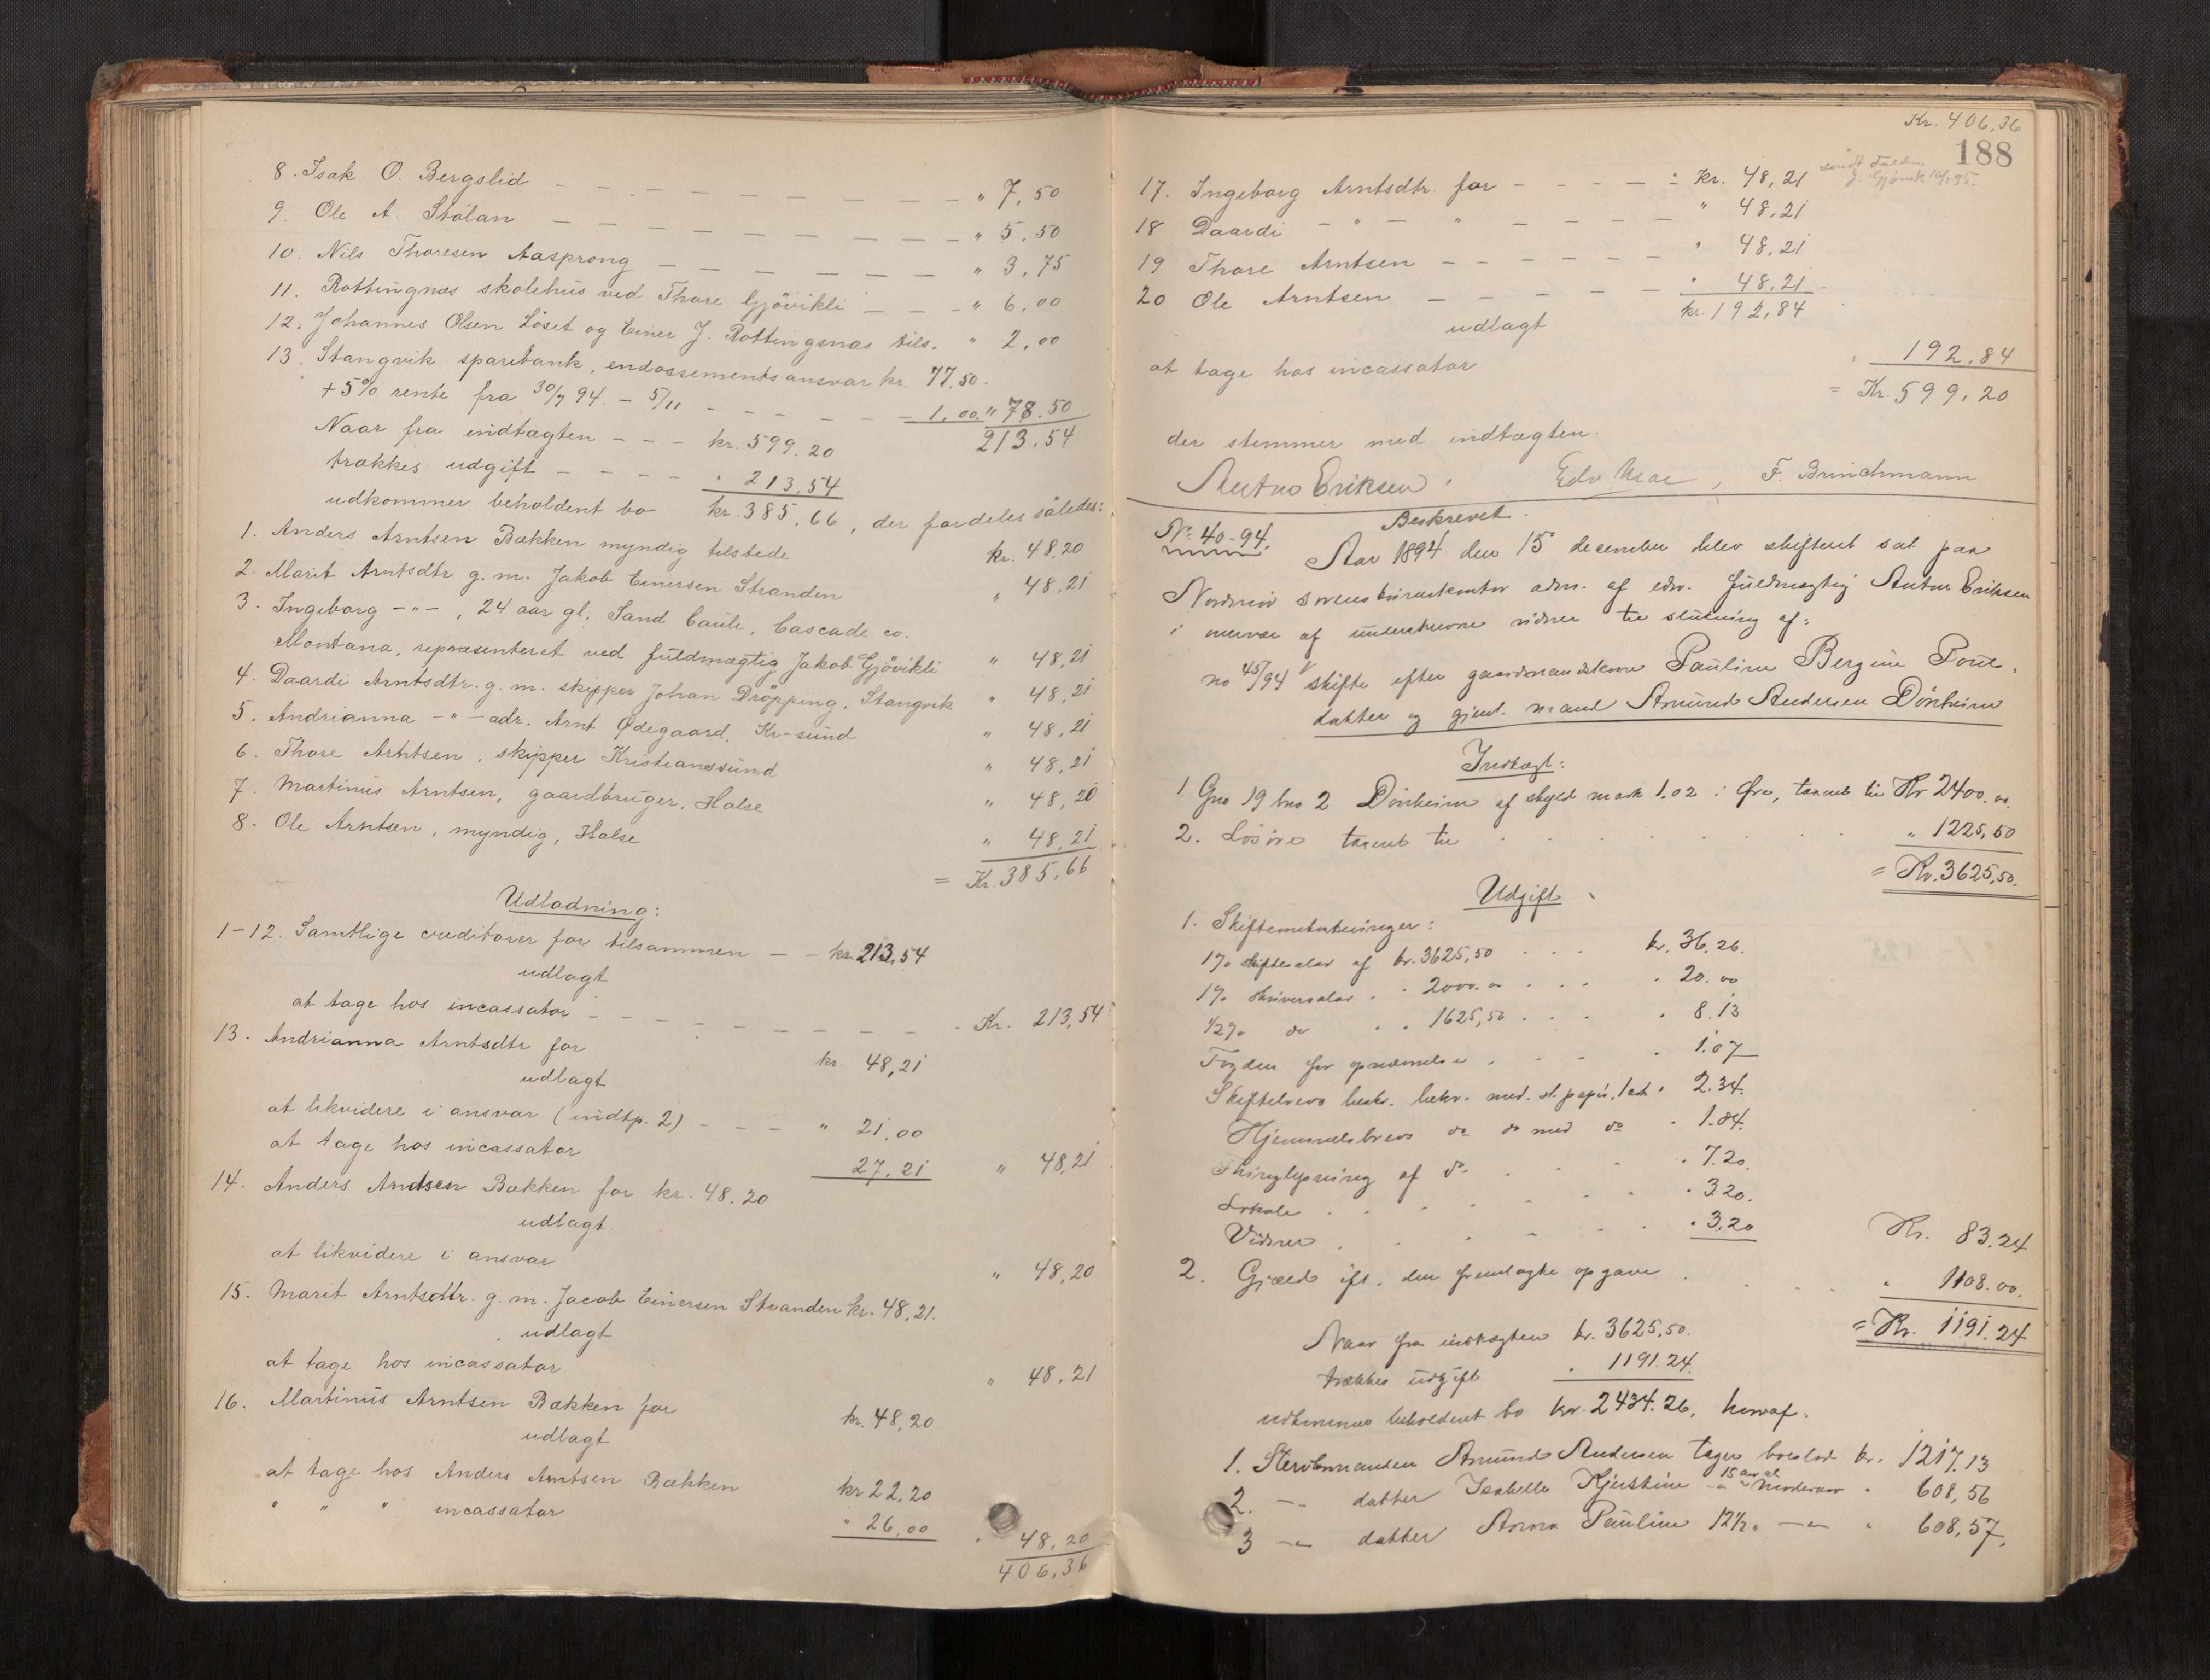 8. Isak O. Bergslid — — — — — — — — — " 7,50
9. Ole A. Stölan — — — — — — — — — " 5.50
10. Nils Thoresen Aasprong — — — — — — — " 3,75
11. Rottingnæs skolehus ved Thore Gjövikli — — — " 6,00
12. Johannes Olsen Löset og Einer J. Rottingsnæs tils. " 2,00
13. Stangvik sparebank, endossementsansvar kr. 77.50.
+ 5% rente fra 30/7 94. – 5/11 — — — — — 1.00. " 78.50
213.54
Naar fra indtægten — — — kr. 599.20
trækkes udgift — — — — " 213.54
udkommer beholdent bo kr. 385.66, der fordeles således:
1. Anders Arntsen Bækken myndig tilstede kr. 48,20
2. Marit Arntsdtr g. m. Jakob Einersen Stranden " 48,21
3. Ingeborg -"-, 24 aar gl, Sand Caule, Cascade co.
Montana, repræsenteret ved fuldmægtig Jakob Gjövikli " 48,21
4. Daardi Arntsdtr. g. m. skipper Johan Dröpping, Stangvik " 48,21
5. Andrianna -"- adr. Arnt Ødegaard, Kr-sund " 48,21
6. Thore Arntsen, skipper Kristianssund " 48,21
7. Martinus Arntsen, gaardbruger, Halse " 48,20
8. Ole Arntsen, myndig, Halse " 48,21
= Kr. 385,66
Udlodning:
1-12. Samtlige creditorer for tilsammen — — kr. 213,54
udlagt
at tage hos incassator — — — — — — — — Kr. 213,54
13. Andrianna Arntsdtr for kr. 48,21
udlagt
at likvidere i ansvar (indtp. 2) — — — " 21,00
at tage hos incassator 27,21 " 48,21
14. Anders Arntsen Bækken for kr. 48.20
udlagt
at likvidere i ansvar " 48,20
15. Marit Arntsdtr. g. m. Jacob Einersen Stranden kr. 48,21.
udlagt
at tage hos incassator " 48,21
16. Martinus Arntsen Bækken for kr. 48,20
udlagt
at tage hos Anders Arntsen Bækken kr 22,20
" " " incassator " 26,00 " 48,20
406,36
Kr. 406,36
188
17. Ingeborg Arntsdtr. for — — — — : kr. 48,21
18 Daardi — " — " — — — — " 48,21
19 Thore Arntsen — — — — — — " 48,21
20 Ole Arntsen — — — — — " 48,21
udlagt kr. 192,84
at tage hos incassator " 192,84
= Kr. 599,20
der stemmer med indtægten.
Anton Eriksen. Edv. Moe, F. Brinchmann
Beskrevet.
No 40-94. Aar 1894 den 15 december blev skifteret sat paa
Nordmör sorenskriverkontor adm. af edsv. fuldmægtig Anton Eriksen
i nærvær af underskrevne vidner til slutning af:
no 45/94 skifte efter gaardmandskone Pauline Bergine Poul-
datter og gjenl. mand Amund Andersen Dönheim
Indtægt:
1. Gno 19 bno 2 Dönheim af skyld mark 1.02 i Øre, taxeret til Kr 2400.00.
2. Lösöre taxeret til " 1225,50
= Kr. 3625,50.
Udgift
1. Skifteomkostninger:
1% skiftesalær af kr. 3625,50 kr. 36.26.
1% skriversalær " " 2000.00 " 20.00
1/2% do " " 1625,50 " 8.13
Fogden for opnævnelse " 1.07
Skiftebrevs beskr. bekr. med st. papir, 1 ark " 2.34.
Hjemmelsbrevs do do med do " 1.84.
Thinglysning af do " 7.20.
Lokale " 3.20.
Vidner " 3,20 Kr. 83.24
2. Gjæld ift. den fremlagte opgave " 1108.00.
= Kr. 1191.24
Naar fra indtægten kr. 3625,50.
trækkes udgift " 1191.24.
udkommer beholdent bo kr. 2434.26, hvoraf:
1. Sterbmanden Amund Andersen tager boeslod kr. 1217.13
2. -"- datter Isabelle Kjerstine 15 aar gl. -"- Modersarv " 608,56
3 -"- datter Anna Pauline 12½ " -"- " 608,57.